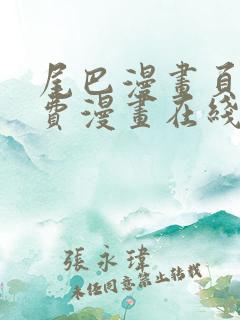 尾巴漫畫頁
費漫畫在綫
張永瑋
未任同意禁止转载